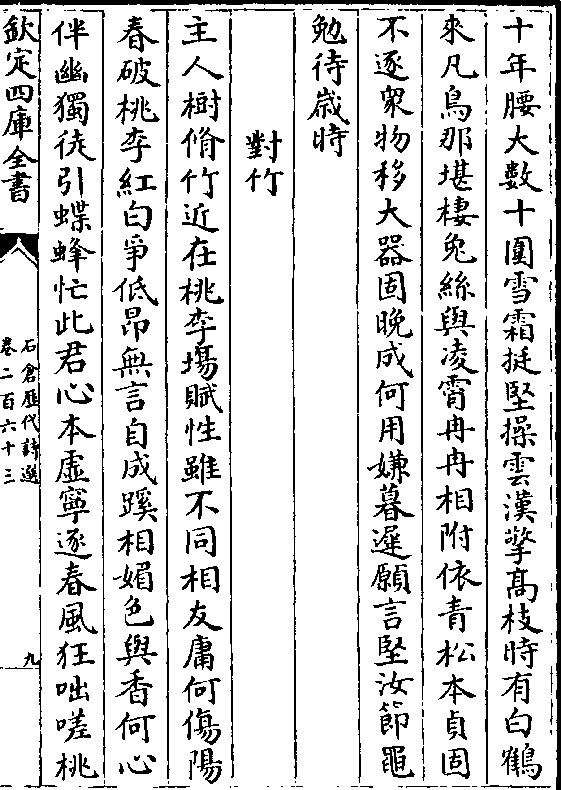 十年腰大數十圍雪霜挺堅操雲漢擎髙枝時有白鶴
來凡鳥那堪棲兔絲與凌霄冉冉相附依青松本貞固
不逐衆物移大器固晚成何用嫌暮遲願言堅汝節黽
勉待嵗時
對竹
主人樹脩竹近在桃李塲賦性雖不同相友庸何傷陽
春破桃李紅白爭低昂無言自成蹊相媚色與香何心
伴幽獨徒引蝶蜂忙此君心本虛寧逐春風狂咄嗟桃
欽定四庫全書
石倉歴代詩選
卷二百六十三
九